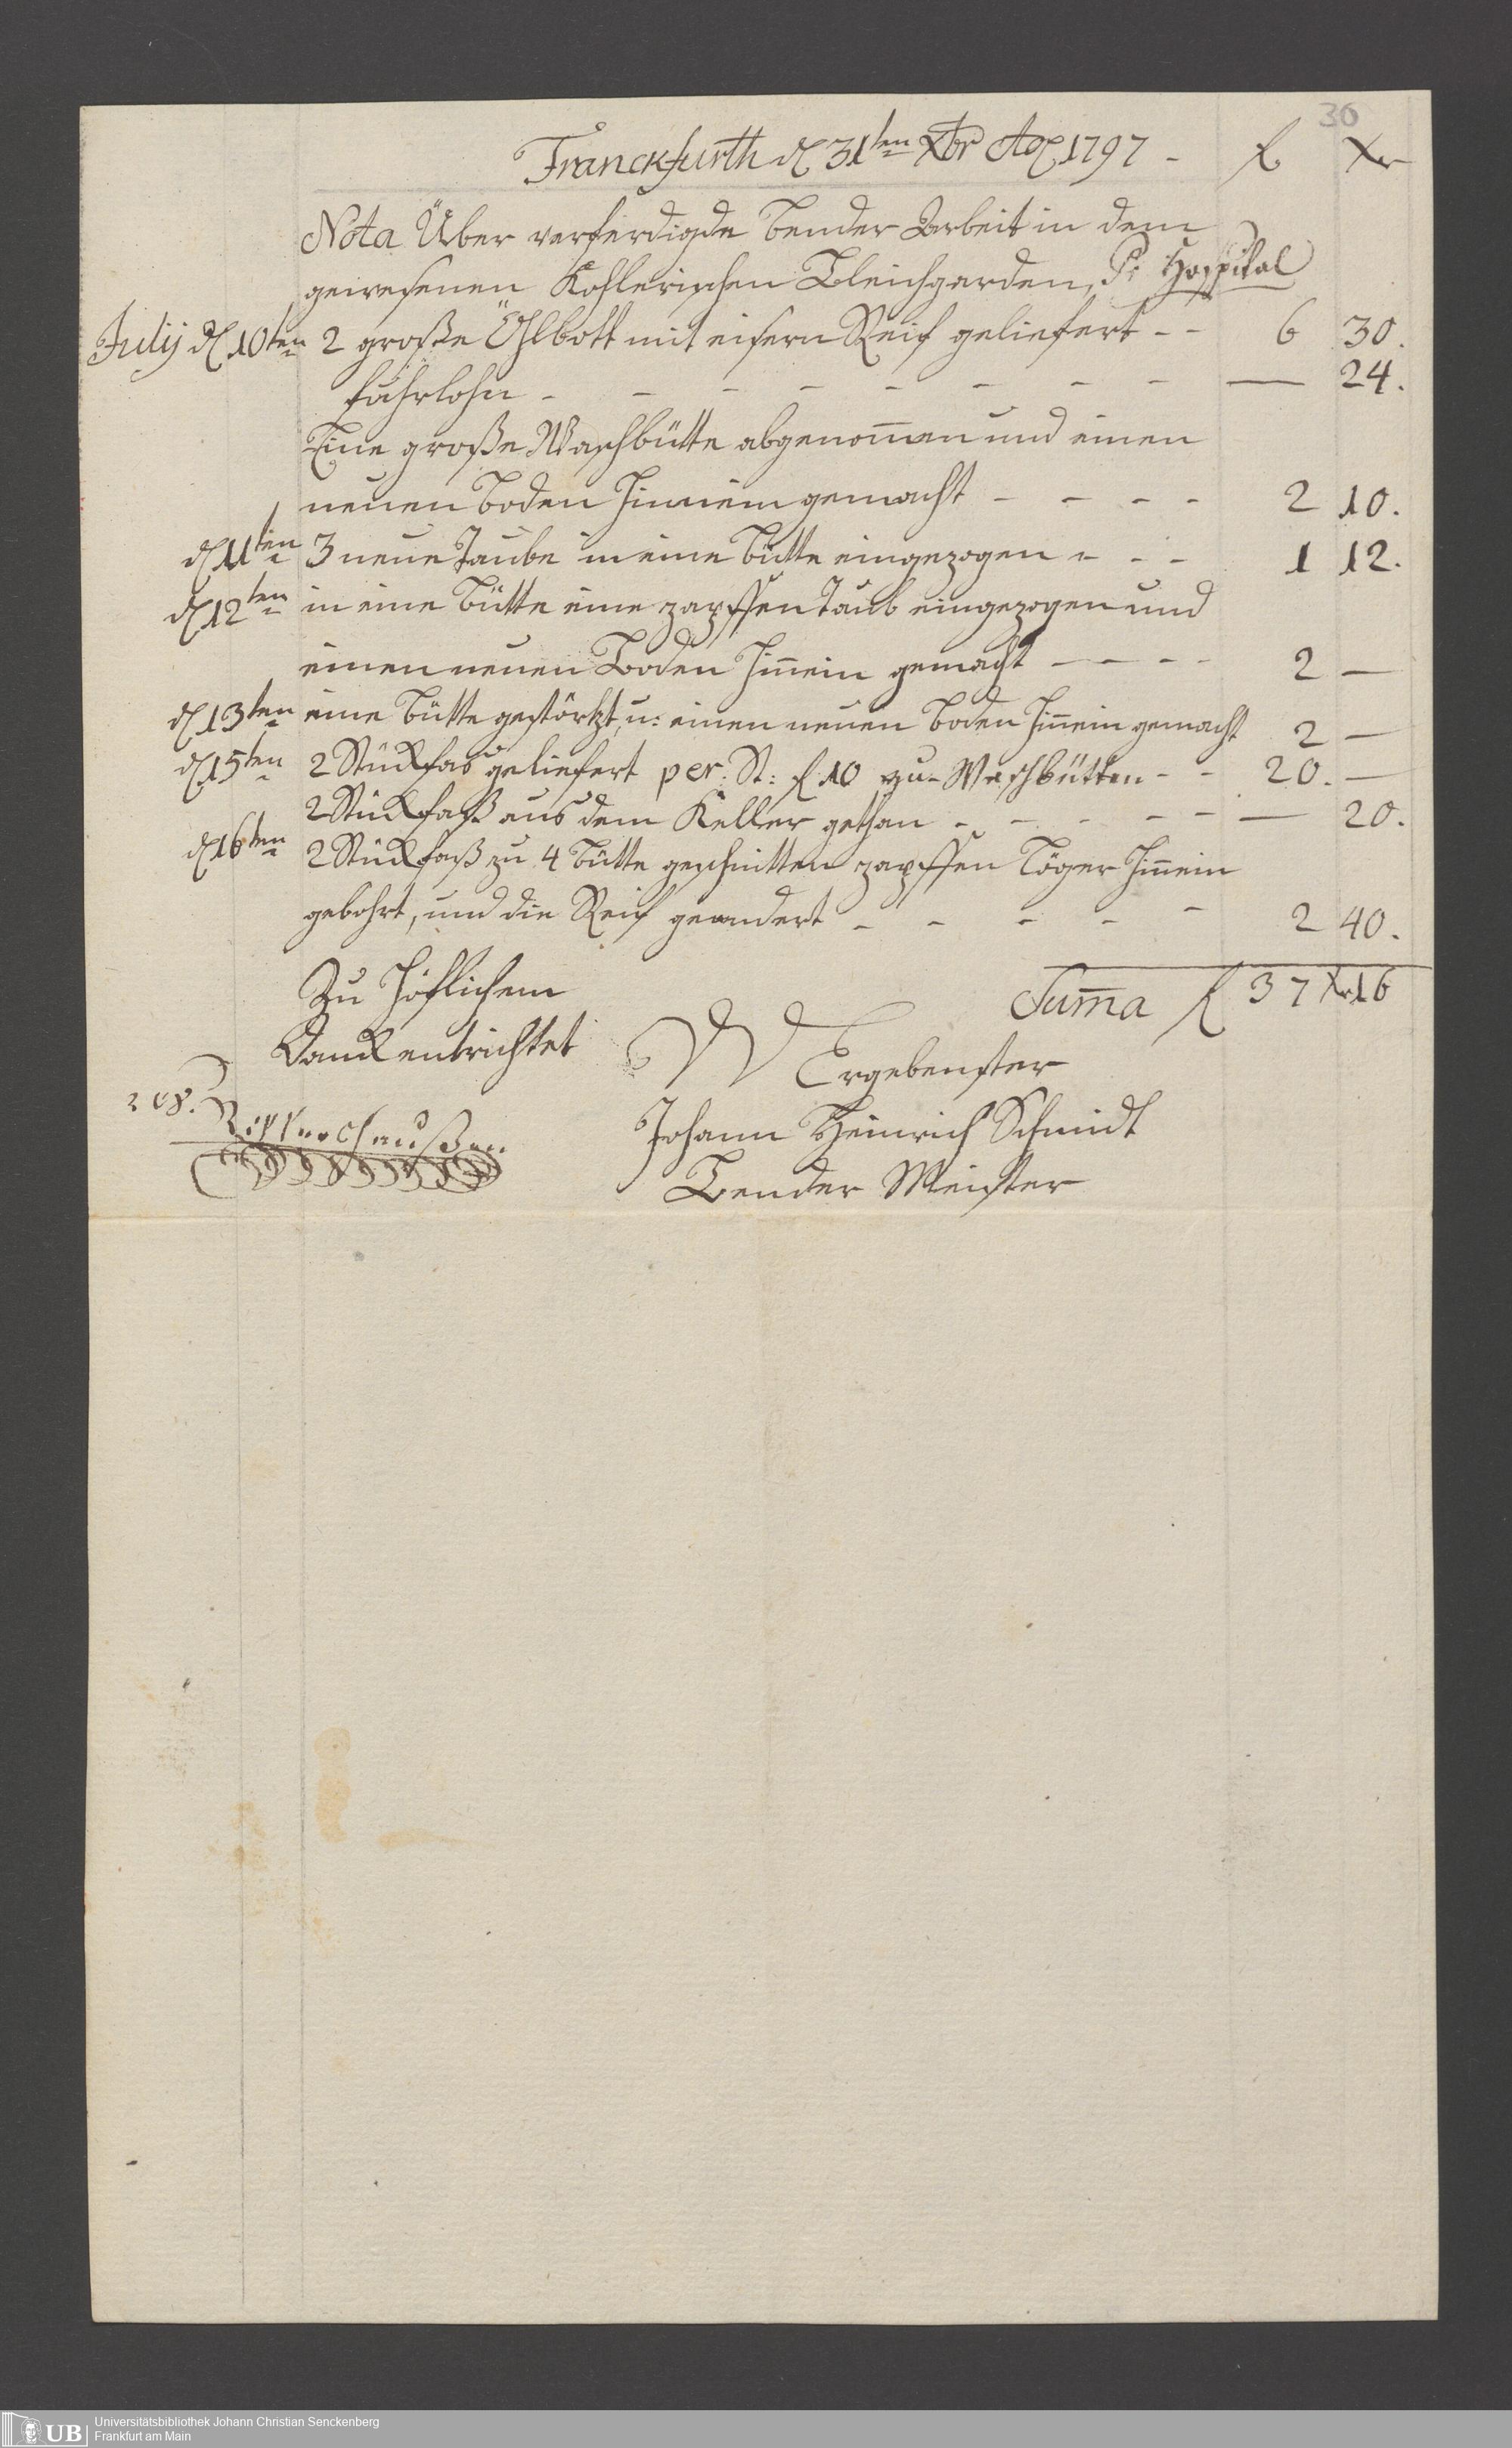 30
Franckfurth d 31ten Xbr Ao 1797 - f Xr
Nota Über verferdigde Bender Arbeit in dem
gewesenen Kohlerischen Bleichgarden, P: Hospital
Julij d 10ten 2 große Öhlbott mit eisern Reif geliefert - - 6 30.
Fuhrlohn - - - - - - - - — 24.
Eine große Waschbütte abgenom̄en und einen
neuen Boden hinnein gemacht - - - - 2 10.
d 11ten 3 neue Taube in eine Bütte eingezogen - - - 1 12.
d 12ten in eine Bütte eine zapffen Taub eingezogen und
einen neuen Boden hin̄ein gemacht - - - - 2 —
d 13ten eine Bütte gestörtzt, u: einen neuen Boden hin̄ein gemacht 2 —
d 15ten 2 Stückfas geliefert per. St: f 10 zu Waschbütten - - 20. —
2 Stückfaß aus dem Keller gethan - - - - - — 20.
d 16ten 2 Stückfaß zu 4 Bütte geschnitten zapffen Löger hin̄ein
gebohrt, und die Reif geändert - - - - - 2 40.
Sum̄a f 37 Xr 16
Zu höflichem
Danck entrichtet
Ergebenster
Johann Heinrich Schmidt
Bender Meister
208.
UB Universitätsbibliothek Johann Christian Senckenberg
Frankfurt am Main